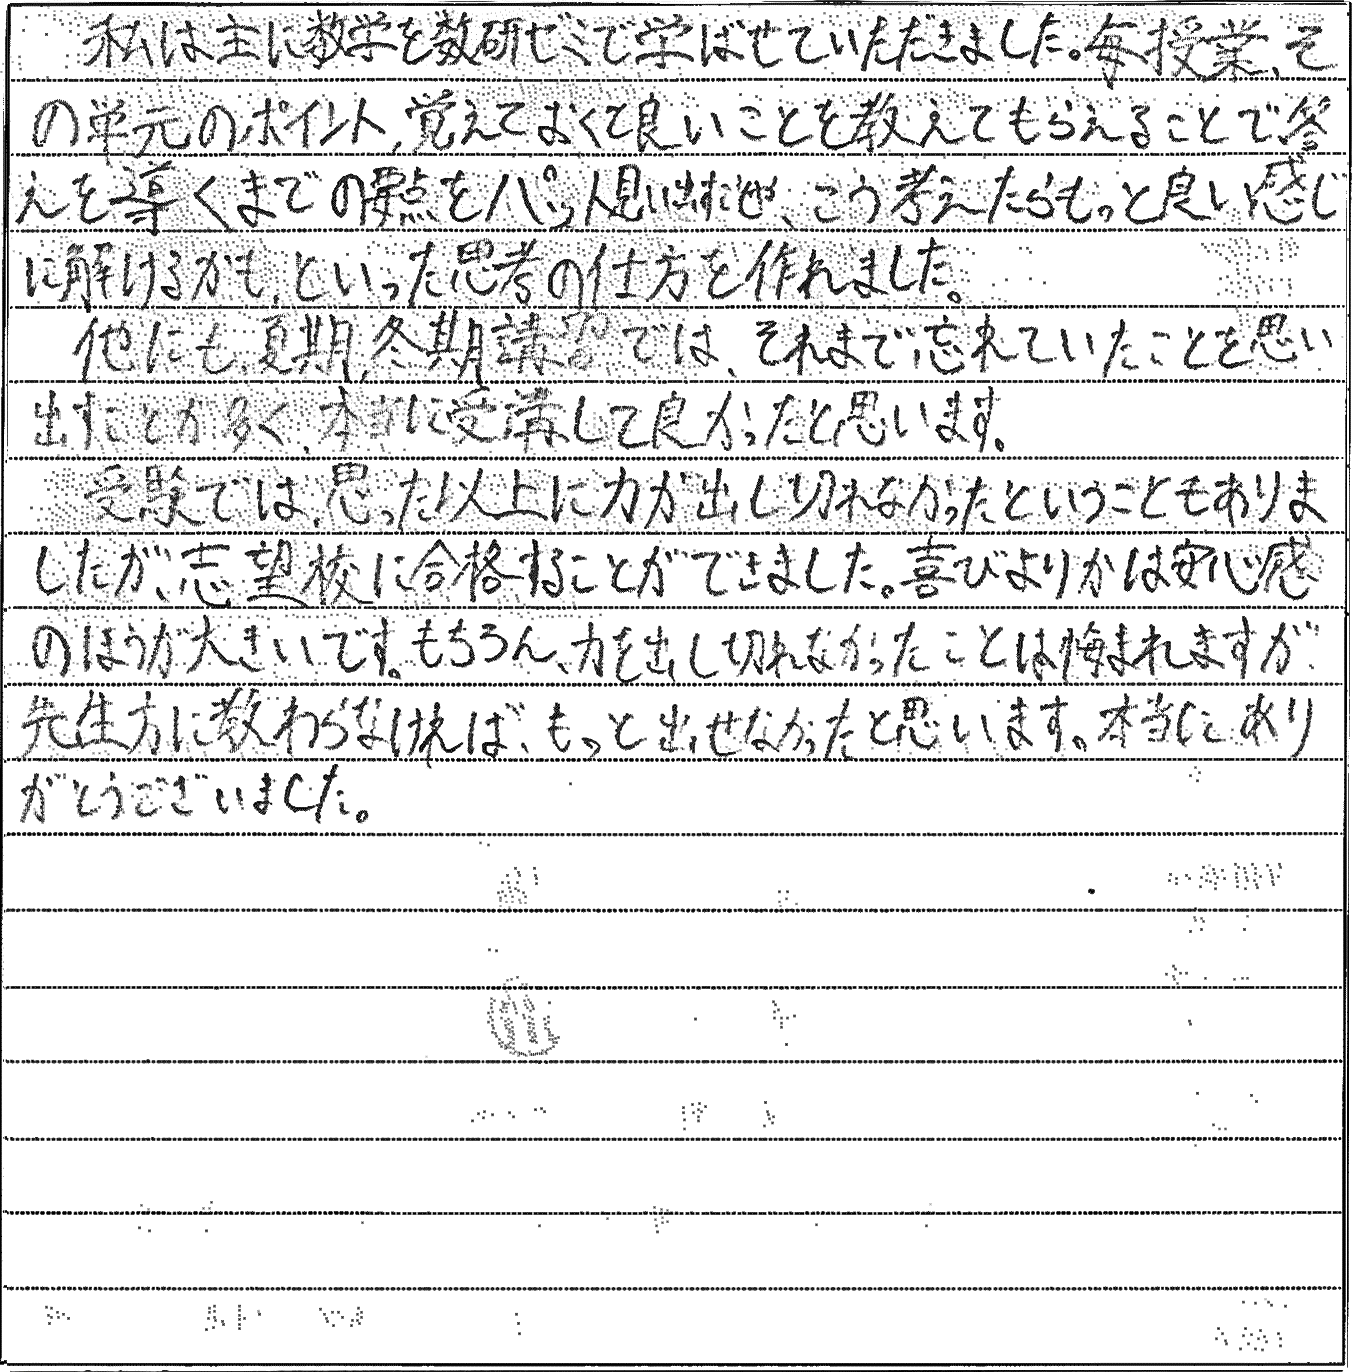 私は主に数学を数研ゼミで学ばせていただきました。毎授業、そ
の単元のポイント、覚えておくて良いことを教えてもらえることで答
えを導くまでの要点をパッと思い出すことや、こう考えたらもっと良い感じ
に解けるかも、といった思考の仕方を作れました。
他にも、夏期、冬期講習では、それまで忘れていたことを思い
出すことが多く、本当に受講して良かったと思います。
受験では、思った以上に力が出し切れなかったということもありま
したが、志望校に合格することができました。喜びよりかは安心感
のほうが大きいです。もちろん、力を出し切れなかったことは悔まれますが、
先生方に教わらなければ、もっと出せなかったと思います。本当にあり
がとうございました。